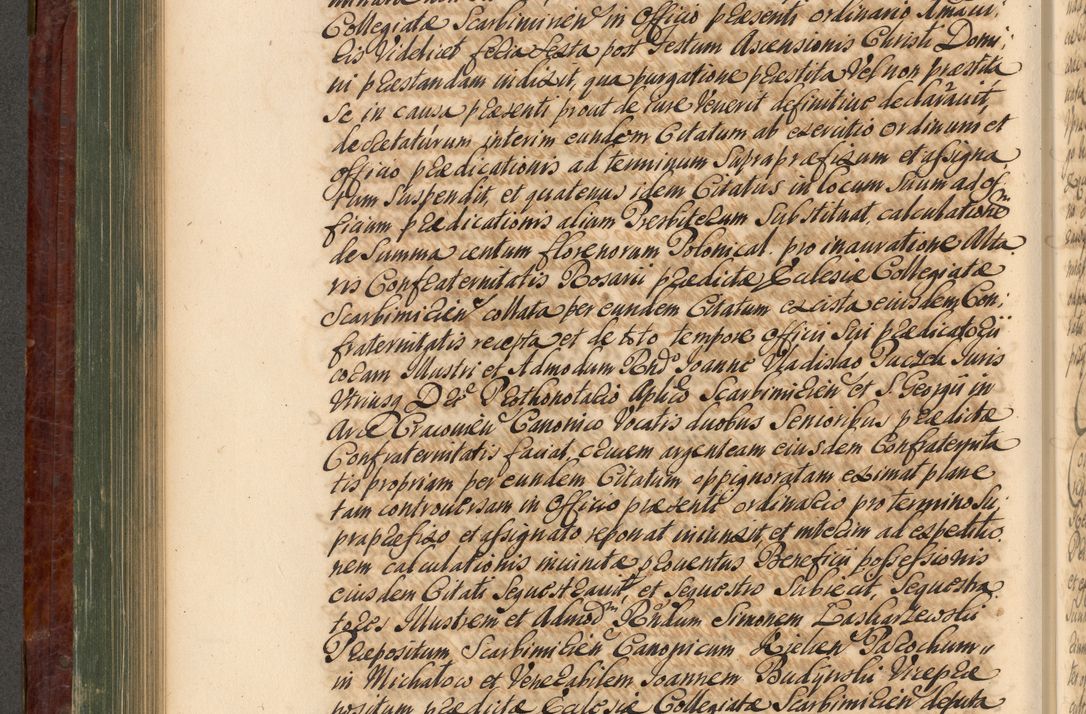 Collegiatæ Scarbimirien̄ in Officio præsenti ordinario Amavi,
lis Videlicet feria sexta post Festum Ascensionis Christi Domi,
ni præstandam indixit, qua purgatione præstita Vel non præstita
se in causa præsenti prout de iure Venerit definitive declaravit,
decretaturum interim eundem Citatum ab exercitio ordinum et
officio prædicationis ad terminum Supra præfixum et assigna
tum Suspendit, et quatenus idem Citatus in locum Suum ad of,
ficium prædicationis alium Presbiterum Substituat, calculationem
de Summa centum florenorum Polonical. pro inauratione Alta
ris Confraternitatis Rosarii prædictæ Ecclesiæ Collegiatæ
Scarbimirien̄ collata per eundem Citatum ex cista eiusdem Con,
fraternitatis recepta et de toto tempore Officii Sui prædicatorii
coram Illustri et Admodum Rndo Joanne Vladislao Juris
Utriusq Dre Prothonotario Aplico Scarbimirien̄ et S. Georgii in
Arce Cracovien̄ Canonico Vocatis duobus Senioribus prædictæ
Confraternitatis faciat, crucem argenteam eiusdem Confraternita
tis propriam per eundem Citatum oppignoratam eximat plane
tam controversam in Officio præsenti ordinario pro termino Su,
pra præfixo et assignato reponat iniunxit et interim ad expeditio,
nem calculationis iniunctæ proventus Beneficii possessionis
eiusdem Citati Sequestravit, et Sequestro Subiecit, Sequestra
tores Illustrem et Admodm Rndum Simonem
Præpositum Scarbimirien̄ Canonicum Kielien̄ Parochum
in Michałow et Venerabilem Joannem Budzynski Vicepræ
positum prædictæ Ecclesiæ Collegiatæ Scarbimirien̄ deputa